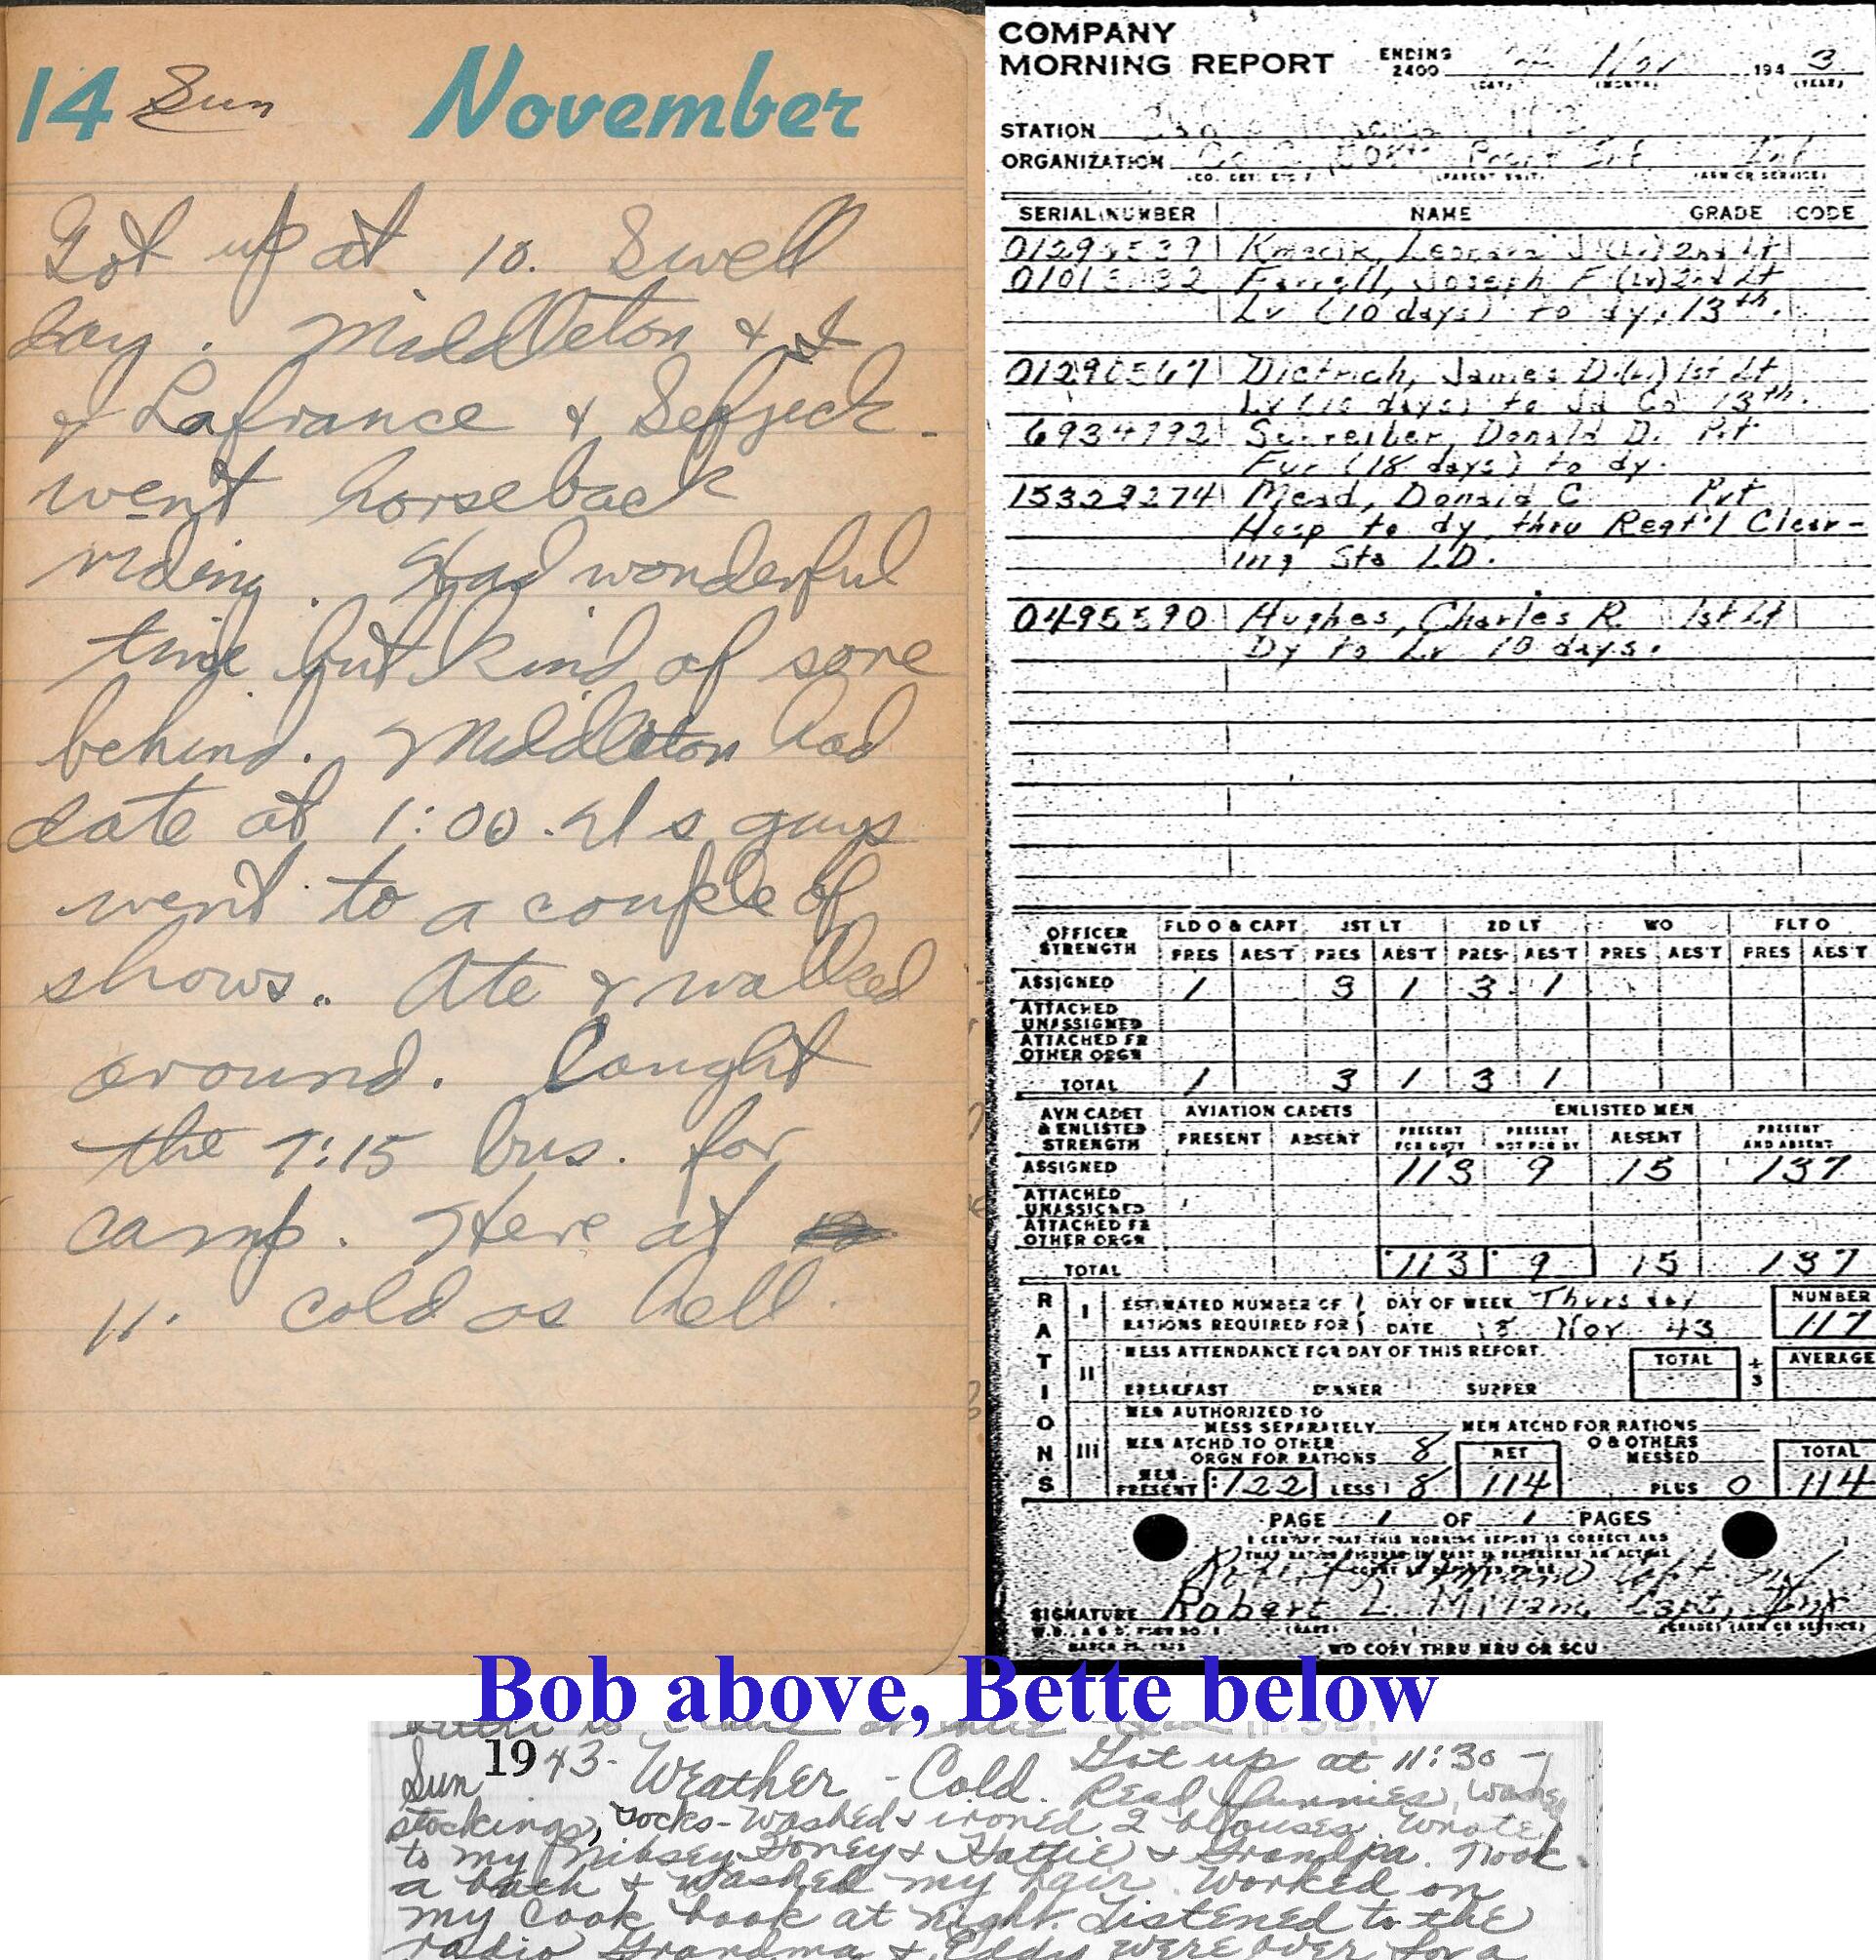 14 Sun November
Got up at 10. Swell
day. Middleton & I
& Lafrance & Sefjeck.
went horseback
riding. Had wonderful
time but kind of sore
behind. Middleton had
date at 1:00. Us guys
went to a couple of
shows. Ate & walked
around. Caught
the 7:15 bus. for
camp. Here at
11. cold as hell.
COMPANY
MORNING REPORT ENDING 2400 Nov 1943
(DAY) (MONTH) (YEAR)
STATION
ORGANIZATION Co Prcht Inf Inf
(CO. DET. ETC.) (PARENT UNIT) (ARM OR SERVICE)
SERIAL NUMBER NAME GRADE CODE
Kmecik, J (Lv) 2nd Lt
Farrell, Joseph F (Lv) 2nd Lt
Lv (10 days) to dy, 13th.
01290567 Dietrich, James D (Lv) 1st Lt
Lv (10 days) to Jd Co 13th.
6934792 Schreiber, Donald D. Pvt
Fur (18 days) to dy.
15329274 Mead, Donald C Pvt
Hosp to dy, thru Regt'l Clear-
ing Sta LD.
0495590 Hughes, Charles R 1st Lt
Dy to Lv 10 days.
OFFICER STRENGTH FLD O & CAPT 1ST LT 2D LT WO FLT O
PRES ABS'T PRES ABS'T PRES ABS'T PRES ABS'T PRES ABS'T
ASSIGNED 1 3 1 3 1
ATTACHED UNASSIGNED
ATTACHED FR OTHER ORGN
TOTAL 1 3 1 3 1
AVN CADET & ENLISTED STRENGTH AVIATION CADETS ENLISTED MEN
PRESENT ABSENT PRESENT FOR DUTY PRESENT NOT FOR DY ABSENT PRESENT AND ABSENT
ASSIGNED 113 9 15 137
ATTACHED UNASSIGNED
ATTACHED FR OTHER ORGN
TOTAL 113 9 15 137
RATIONS
I ESTIMATED NUMBER OF RATIONS REQUIRED FOR DAY OF WEEK Thursday NUMBER
DATE 18 Nov 43 117
II MESS ATTENDANCE FOR DAY OF THIS REPORT. TOTAL ÷ 3 AVERAGE
BREAKFAST DINNER SUPPER
III MEN AUTHORIZED TO MESS SEPARATELY MEN ATCHD FOR RATIONS
MEN ATCHD TO OTHER ORGN FOR RATIONS 8 NET O & OTHERS MESSED TOTAL
MEN PRESENT 122 LESS 8 114 PLUS 0 114
PAGE 1 OF 1 PAGES
I CERTIFY THAT THIS MORNING REPORT IS CORRECT AND
SIGNATURE Robert L. Milam, Capt, Inf
(NAME) (GRADE) (ARM OR SERVICE)
WD COPY THRU MRU OR SCU
Bob above, Bette below
Sun 1943- Weather - Cold. Got up at 11:30 -
Read Funnies, Washed
stockings, socks - Washed & ironed 2 blouses. Wrote
to my Nibsey Honey & Hattie & Grandpa. Took
a bath & washed my hair. Worked on
my cook book at night. Listened to the
radio Grandma & Eddy were over for a